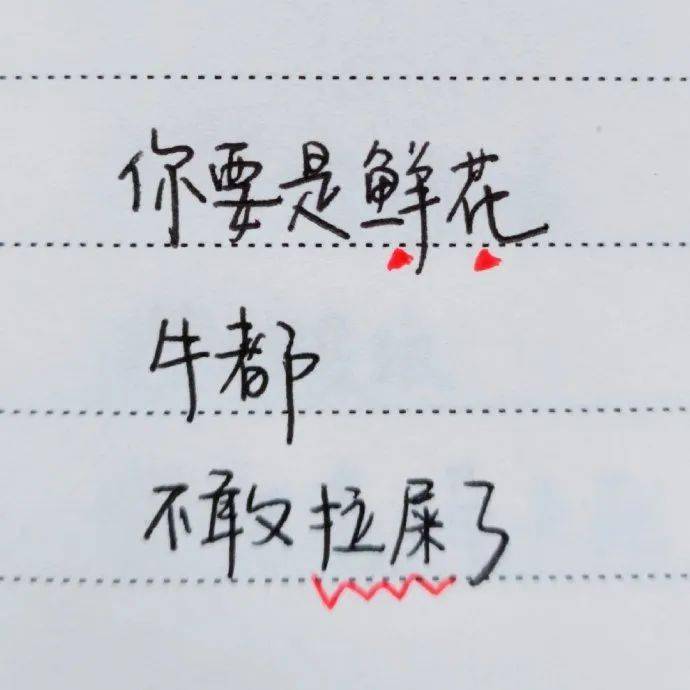 你要是鲜花
牛都
不敢拉屎了